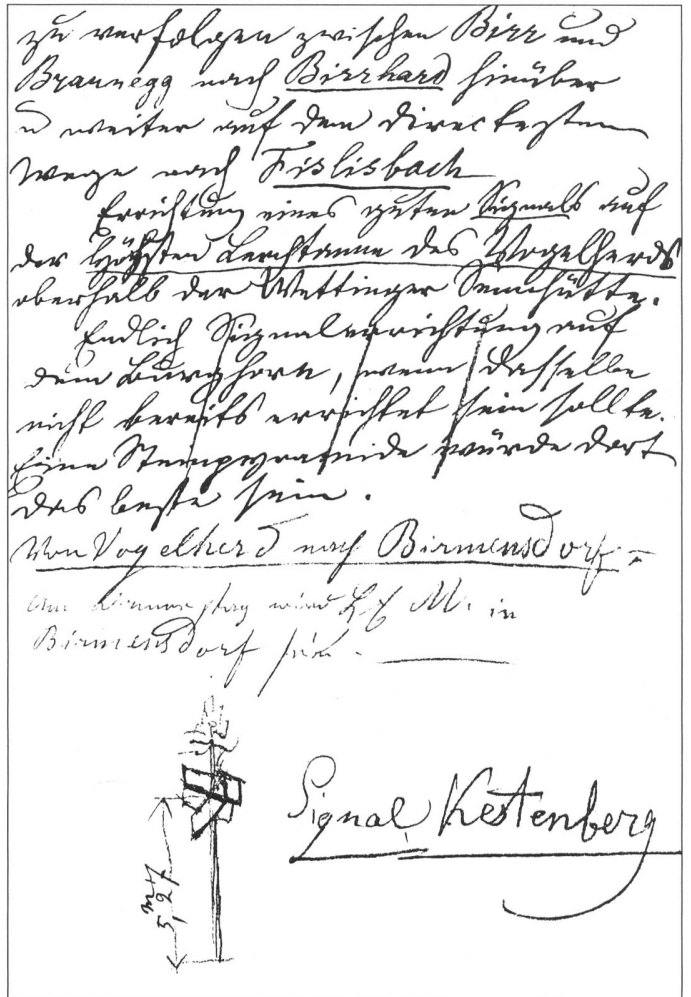 zu verfolgen zwischen Birr und
Braunegg nach Birrhard hinüber
u weiter auf dem direckesten
Wege nach Fislisbach
Errichtung eines guten Signals auf
der Höchsten Lerchtanne des Vogelherds
oberhalb der Wettinger Sennhütte.
Endlich Signalerrichtung auf
dem Burghorn, wenn dasselbe
nicht bereits errichtet sein sollte.
Eine Steinpyramide würde dort
das beste sein.
Von Vogelherd nach Birmensdorf
am Donnerstag wird H M. in
Birmensdorf sein.
Signal Kestenberg
5,27 m